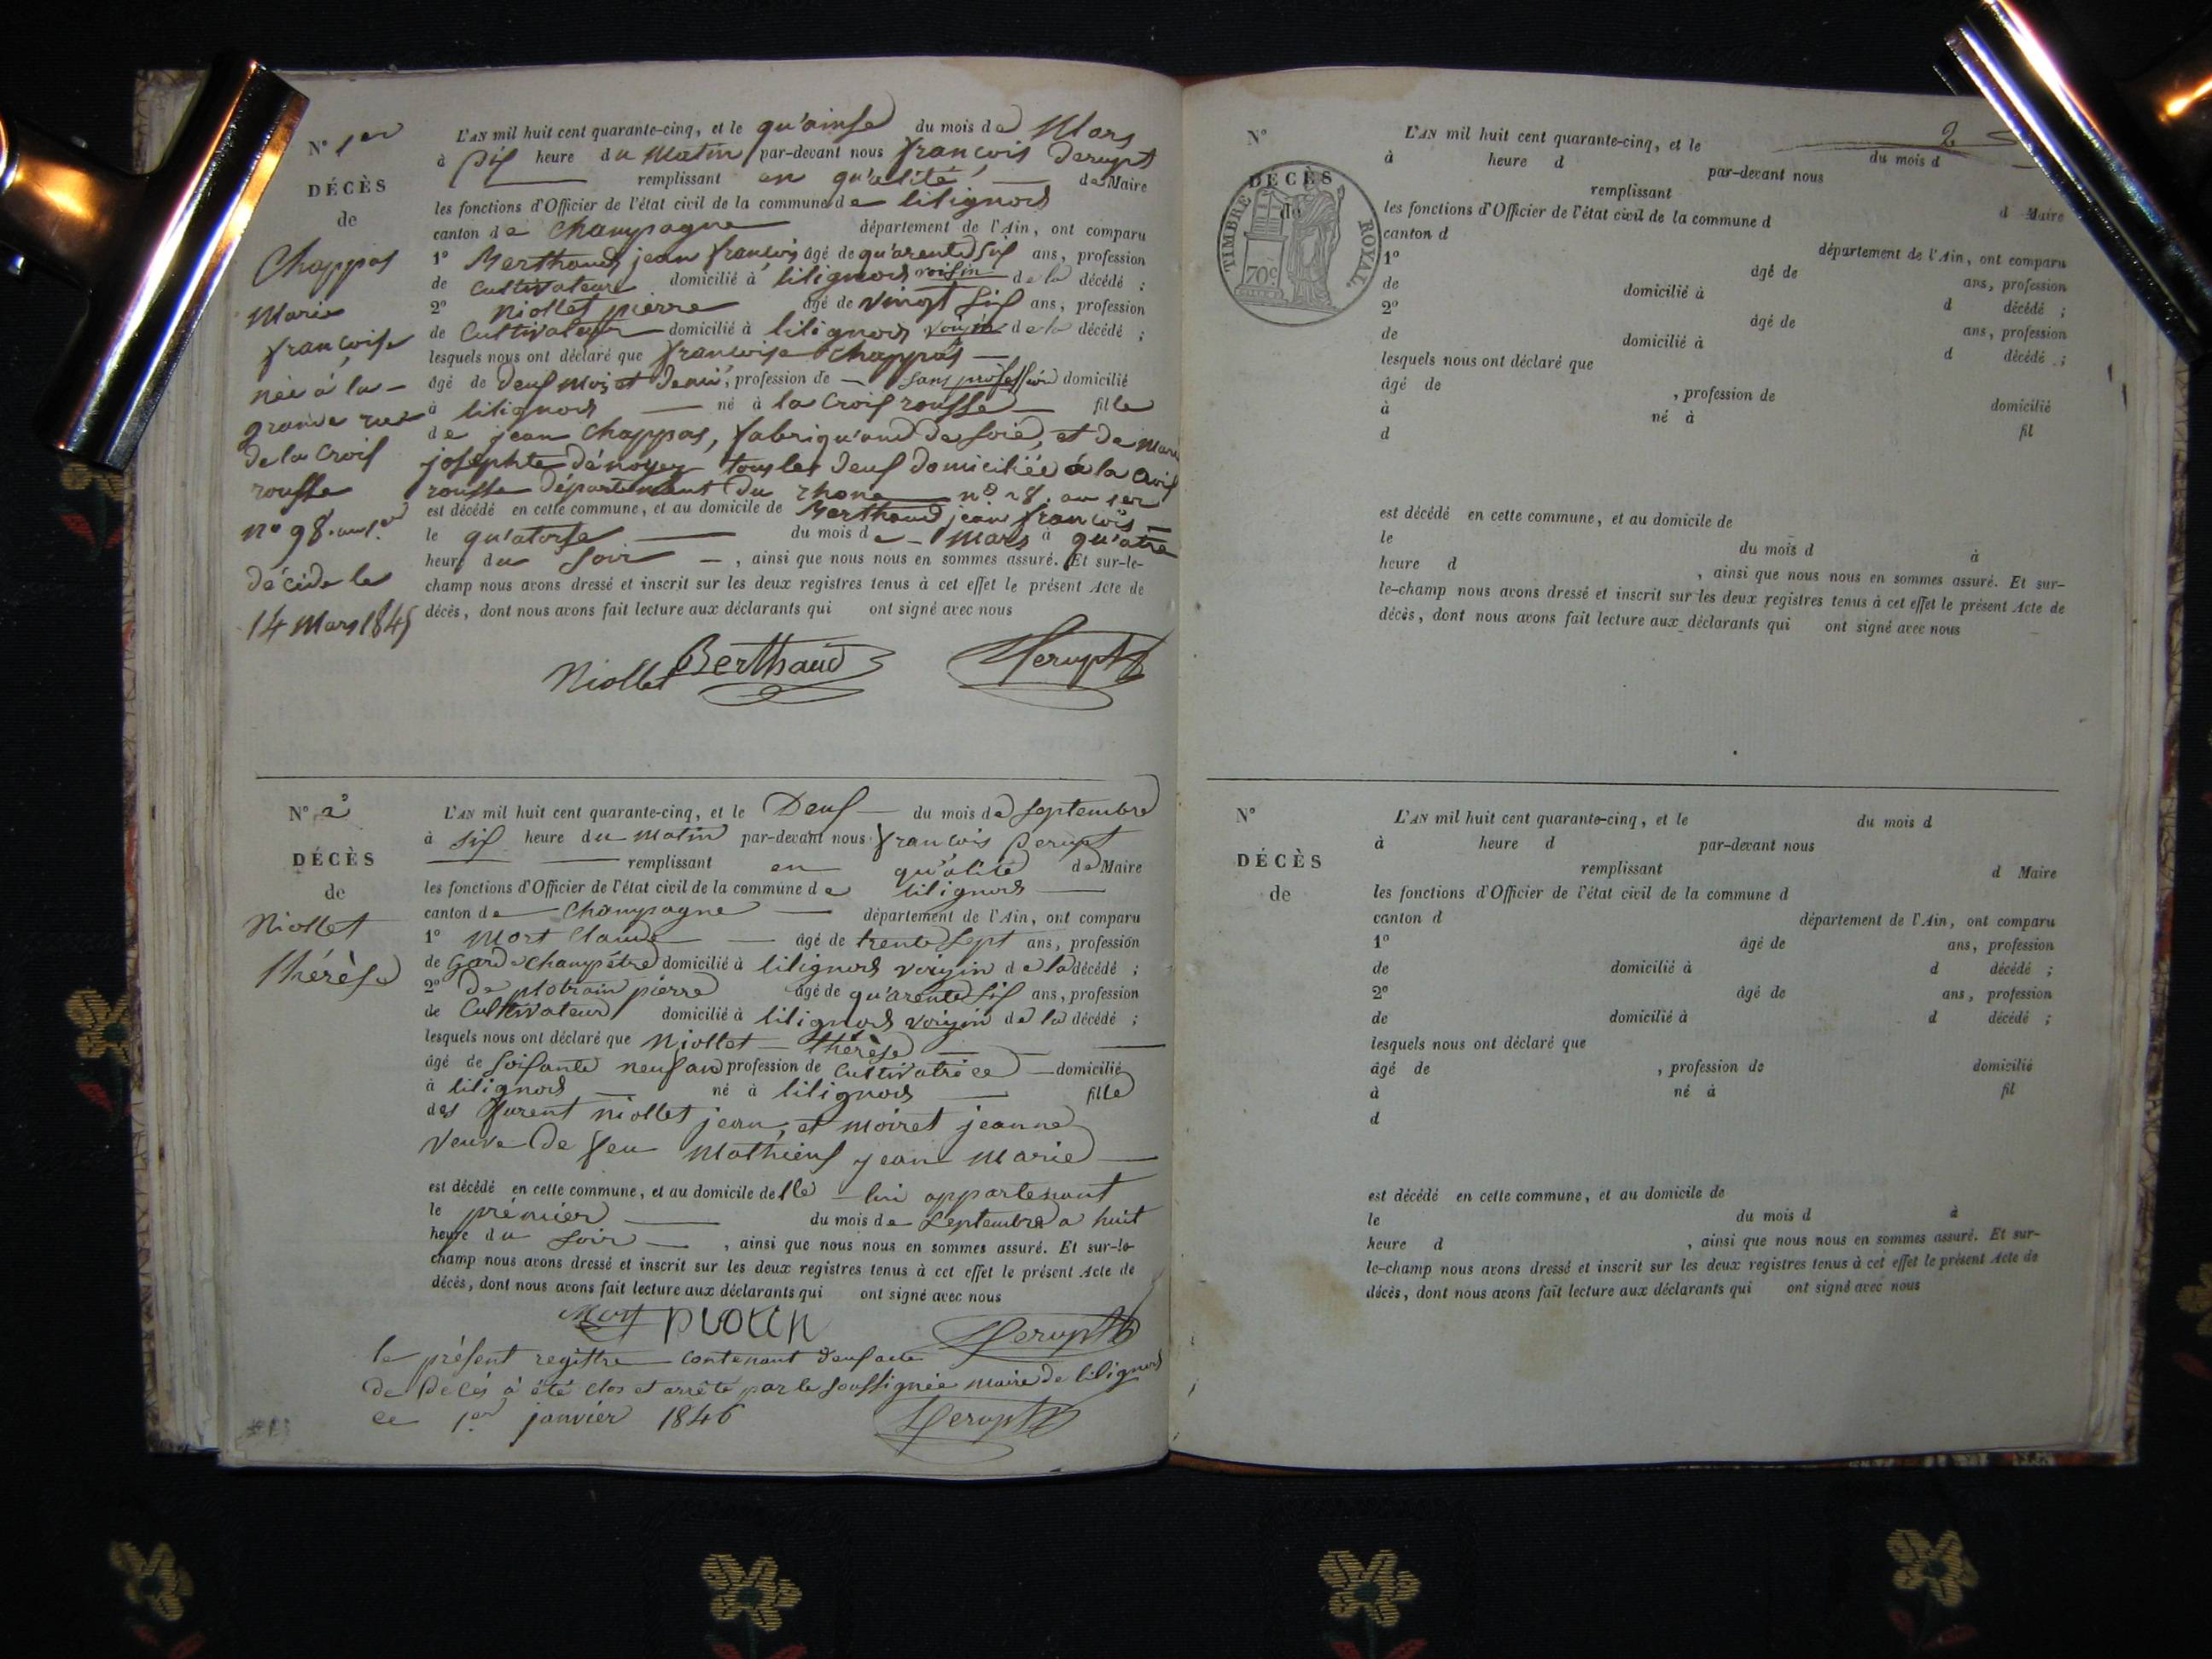 N° 1er
DÉCÈS
de
Chappas
Marie
françoise
née à la
grande rue
de la Croix
rousse
n° 98. au 1er
décidé le
14 Mars 1845
L'AN mil huit cent quarante-cinq, et le qu'ainse du mois de Mars
à Dix heure du Matin par-devant nous françois Derupt
remplissant en qu'alité de Maire
les fonctions d'Officier de l'état civil de la commune de lilignod
canton de Champagne département de l'Ain, ont comparu
1° Berthaud jean françois âgé de qu'arente six ans, profession
de Cultivateur domicilié à lilignod voisin de la décédé ;
2° Niollet pierre âgé de vingt six ans, profession
de Cultivateur domicilié à lilignod voisin de la décédé ;
lesquels nous ont déclaré que françoise Chappas
âgé de deux mois et demi, profession de sans profession domicilié
à lilignod né à la Croix rousse fille
de jean Chappas, fabriqu'and de soie, et de Marie
josephte dénoyer tous les deux domiciliée à la Croix
rousse département du rhone n° 28. au 1er
est décédé en cette commune, et au domicile de Berthaud jean françois
le qu'atorse du mois de Mars à qu'atre
heure du soir , ainsi que nous nous en sommes assuré. Et sur-le-
champ nous avons dressé et inscrit sur les deux registres tenus à cet effet le présent Acte de
décès, dont nous avons fait lecture aux déclarants qui ont signé avec nous
Niollet Berthaud Derupt
N° 2e
DÉCÈS
de
Niollet
thérèse
L'AN mil huit cent quarante-cinq, et le Deux du mois de septembre
à six heure du Matin par-devant nous françois Derupt
remplissant en qu'alité de Maire
les fonctions d'Officier de l'état civil de la commune de lilignod
canton de Champagne département de l'Ain, ont comparu
1° Mort Claude âgé de trente sept ans, profession
de Garde Champêtre domicilié à lilignod voisin de la décédé ;
2° pierre âgé de qu'arente six ans, profession
de Cultivateur domicilié à lilignod voisin de la décédé ;
lesquels nous ont déclaré que Niollet thérèse
âgé de soixante neuf an profession de Cultivatrice domicilié
à lilignod né à lilignod fille
des furent niollet jean, et moiret jeanne
veuve de feu Mathieux jean Marie
est décédé en cette commune, et au domicile delle lui appartenant
le prémier du mois de septembre a huit
heure du soir , ainsi que nous nous en sommes assuré. Et sur-le-
champ nous avons dressé et inscrit sur les deux registres tenus à cet effet le présent Acte de
décès, dont nous avons fait lecture aux déclarants qui ont signé avec nous
Mort Derupt
le présent registre contenant deux acte
de Décés à été clos et arrêté par le soussignée maire de lilignod
ce 1er janvier 1846 Derupt
2
N°
DÉCÈS
de
TIMBRE ROYAL
70c
L'AN mil huit cent quarante-cinq, et le du mois d
à heure d par-devant nous
remplissant d Maire
les fonctions d'Officier de l'état civil de la commune d
canton d département de l'Ain, ont comparu
1° âgé de ans, profession
de domicilié à d décédé ;
2° âgé de ans, profession
de domicilié à d décédé ;
lesquels nous ont déclaré que
âgé de , profession de domicilié
à né à fil
d
est décédé en cette commune, et au domicile de
le du mois d à
heure d , ainsi que nous nous en sommes assuré. Et sur-
le-champ nous avons dressé et inscrit sur les deux registres tenus à cet effet le présent Acte de
décès, dont nous avons fait lecture aux déclarants qui ont signé avec nous
N°
DÉCÈS
de
L'AN mil huit cent quarante-cinq, et le du mois d
à heure d par-devant nous
remplissant d Maire
les fonctions d'Officier de l'état civil de la commune d
canton d département de l'Ain, ont comparu
1° âgé de ans, profession
de domicilié à d décédé ;
2° âgé de ans, profession
de domicilié à d décédé ;
lesquels nous ont déclaré que
âgé de , profession de domicilié
à né à fil
d
est décédé en cette commune, et au domicile de
le du mois d à
heure d , ainsi que nous nous en sommes assuré. Et sur-
le-champ nous avons dressé et inscrit sur les deux registres tenus à cet effet le présent Acte de
décès, dont nous avons fait lecture aux déclarants qui ont signé avec nous